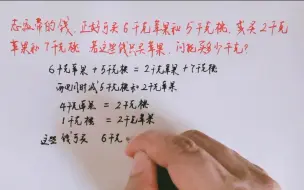 志宸带的钱,正好可买6千克苹果和5千克桃,或买2千克
苹果和7千克桃,若这些钱只买苹果,问能买多少千克?
6千克苹果+5千克桃=2千克苹果+7千克桃
两边同时减5千克桃和2千克苹果
4千克苹果=2千克桃
1千克桃=2千克苹果
这些钱可买 6千克